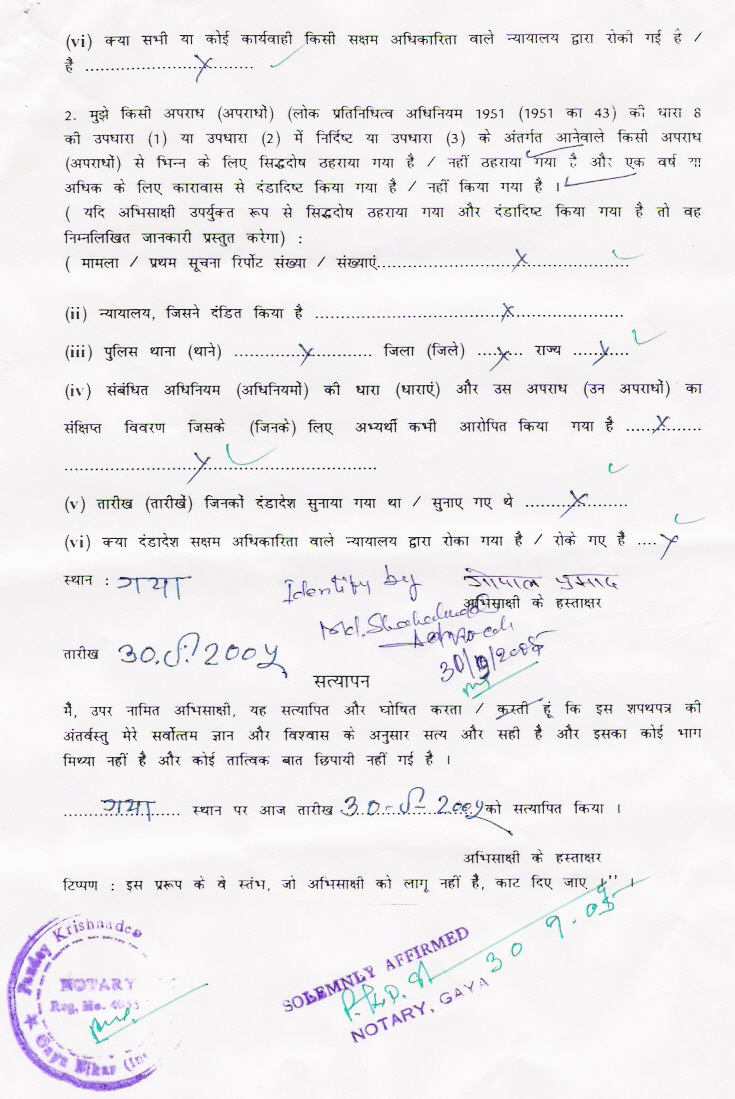 (vi) क्या सभी या कोई कार्यवाही किसी सक्षम अधिकारिता वाले न्यायालय द्वारा रोकी गई है /
है ........................X............
2. मुझे किसी अपराध (अपराधों) (लोक प्रतिनिधित्व अधिनियम 1951 (1951 का 43) की धारा 8
की उपधारा (1) या उपधारा (2) में निर्दिष्ट या उपधारा (3) के अंतर्गत आनेवाले किसी अपराध
(अपराधों) से भिन्न के लिए सिद्धदोष ठहराया गया है / नहीं ठहराया गया है और एक वर्ष या
अधिक के लिए कारावास से दंडादिष्ट किया गया है / नहीं किया गया है ।
( यदि अभिसाक्षी उपर्युक्त रूप से सिद्धदोष ठहराया गया और दंडादिष्ट किया गया है तो वह
निम्नलिखित जानकारी प्रस्तुत करेगा) :
( मामला / प्रथम सूचना रिर्पोट संख्या / संख्याएं............................X....................
(ii) न्यायालय, जिसने दंडित किया है .....................................X......................
(iii) पुलिस थाना (थाने) ...............X............. जिला (जिले) .....X... राज्य ......X.....
(iv) संबंधित अधिनियम (अधिनियमों) की धारा (धाराएं) और उस अपराध (उन अपराधों) का
संक्षिप्त विवरण जिसके (जिनके) लिए अभ्यर्थी कभी आरोपित किया गया है .....X........
...........................X...................................
(v) तारीख (तारीखें) जिनकों दंडादेश सुनाया गया था / सुनाए गए थे ..........X..........
(vi) क्या दंडादेश सक्षम अधिकारिता वाले न्यायालय द्वारा रोका गया है / रोके गए है ....X
स्थान : गया Identify by गोपाल प्रसाद
अभिसाक्षी के हस्ताक्षर
तारीख
सत्यापन
मै, उपर नामित अभिसाक्षी, यह सत्यापित और घोषित करता / करती हूं कि इस शपथपत्र की
अंतर्वस्तु मेरे सर्वोत्तम ज्ञान और विश्वास के अनुसार सत्य और सही है और इसका कोई भाग
मिथ्या नहीं है और कोई तात्विक बात छिपायी नहीं गई है ।
........गया..... स्थान पर आज तारीख को सत्यापित किया ।
अभिसाक्षी के हस्ताक्षर
टिप्पण : इस प्ररूप के वे स्तंभ, जो अभिसाक्षी को लागू नहीं है, काट दिए जाए ।" ।
Pandey Krishnadeo
NOTARY
Reg. No.
Gaya Bihar
SOLEMNLY AFFIRMED
30 9.05
NOTARY, GAYA